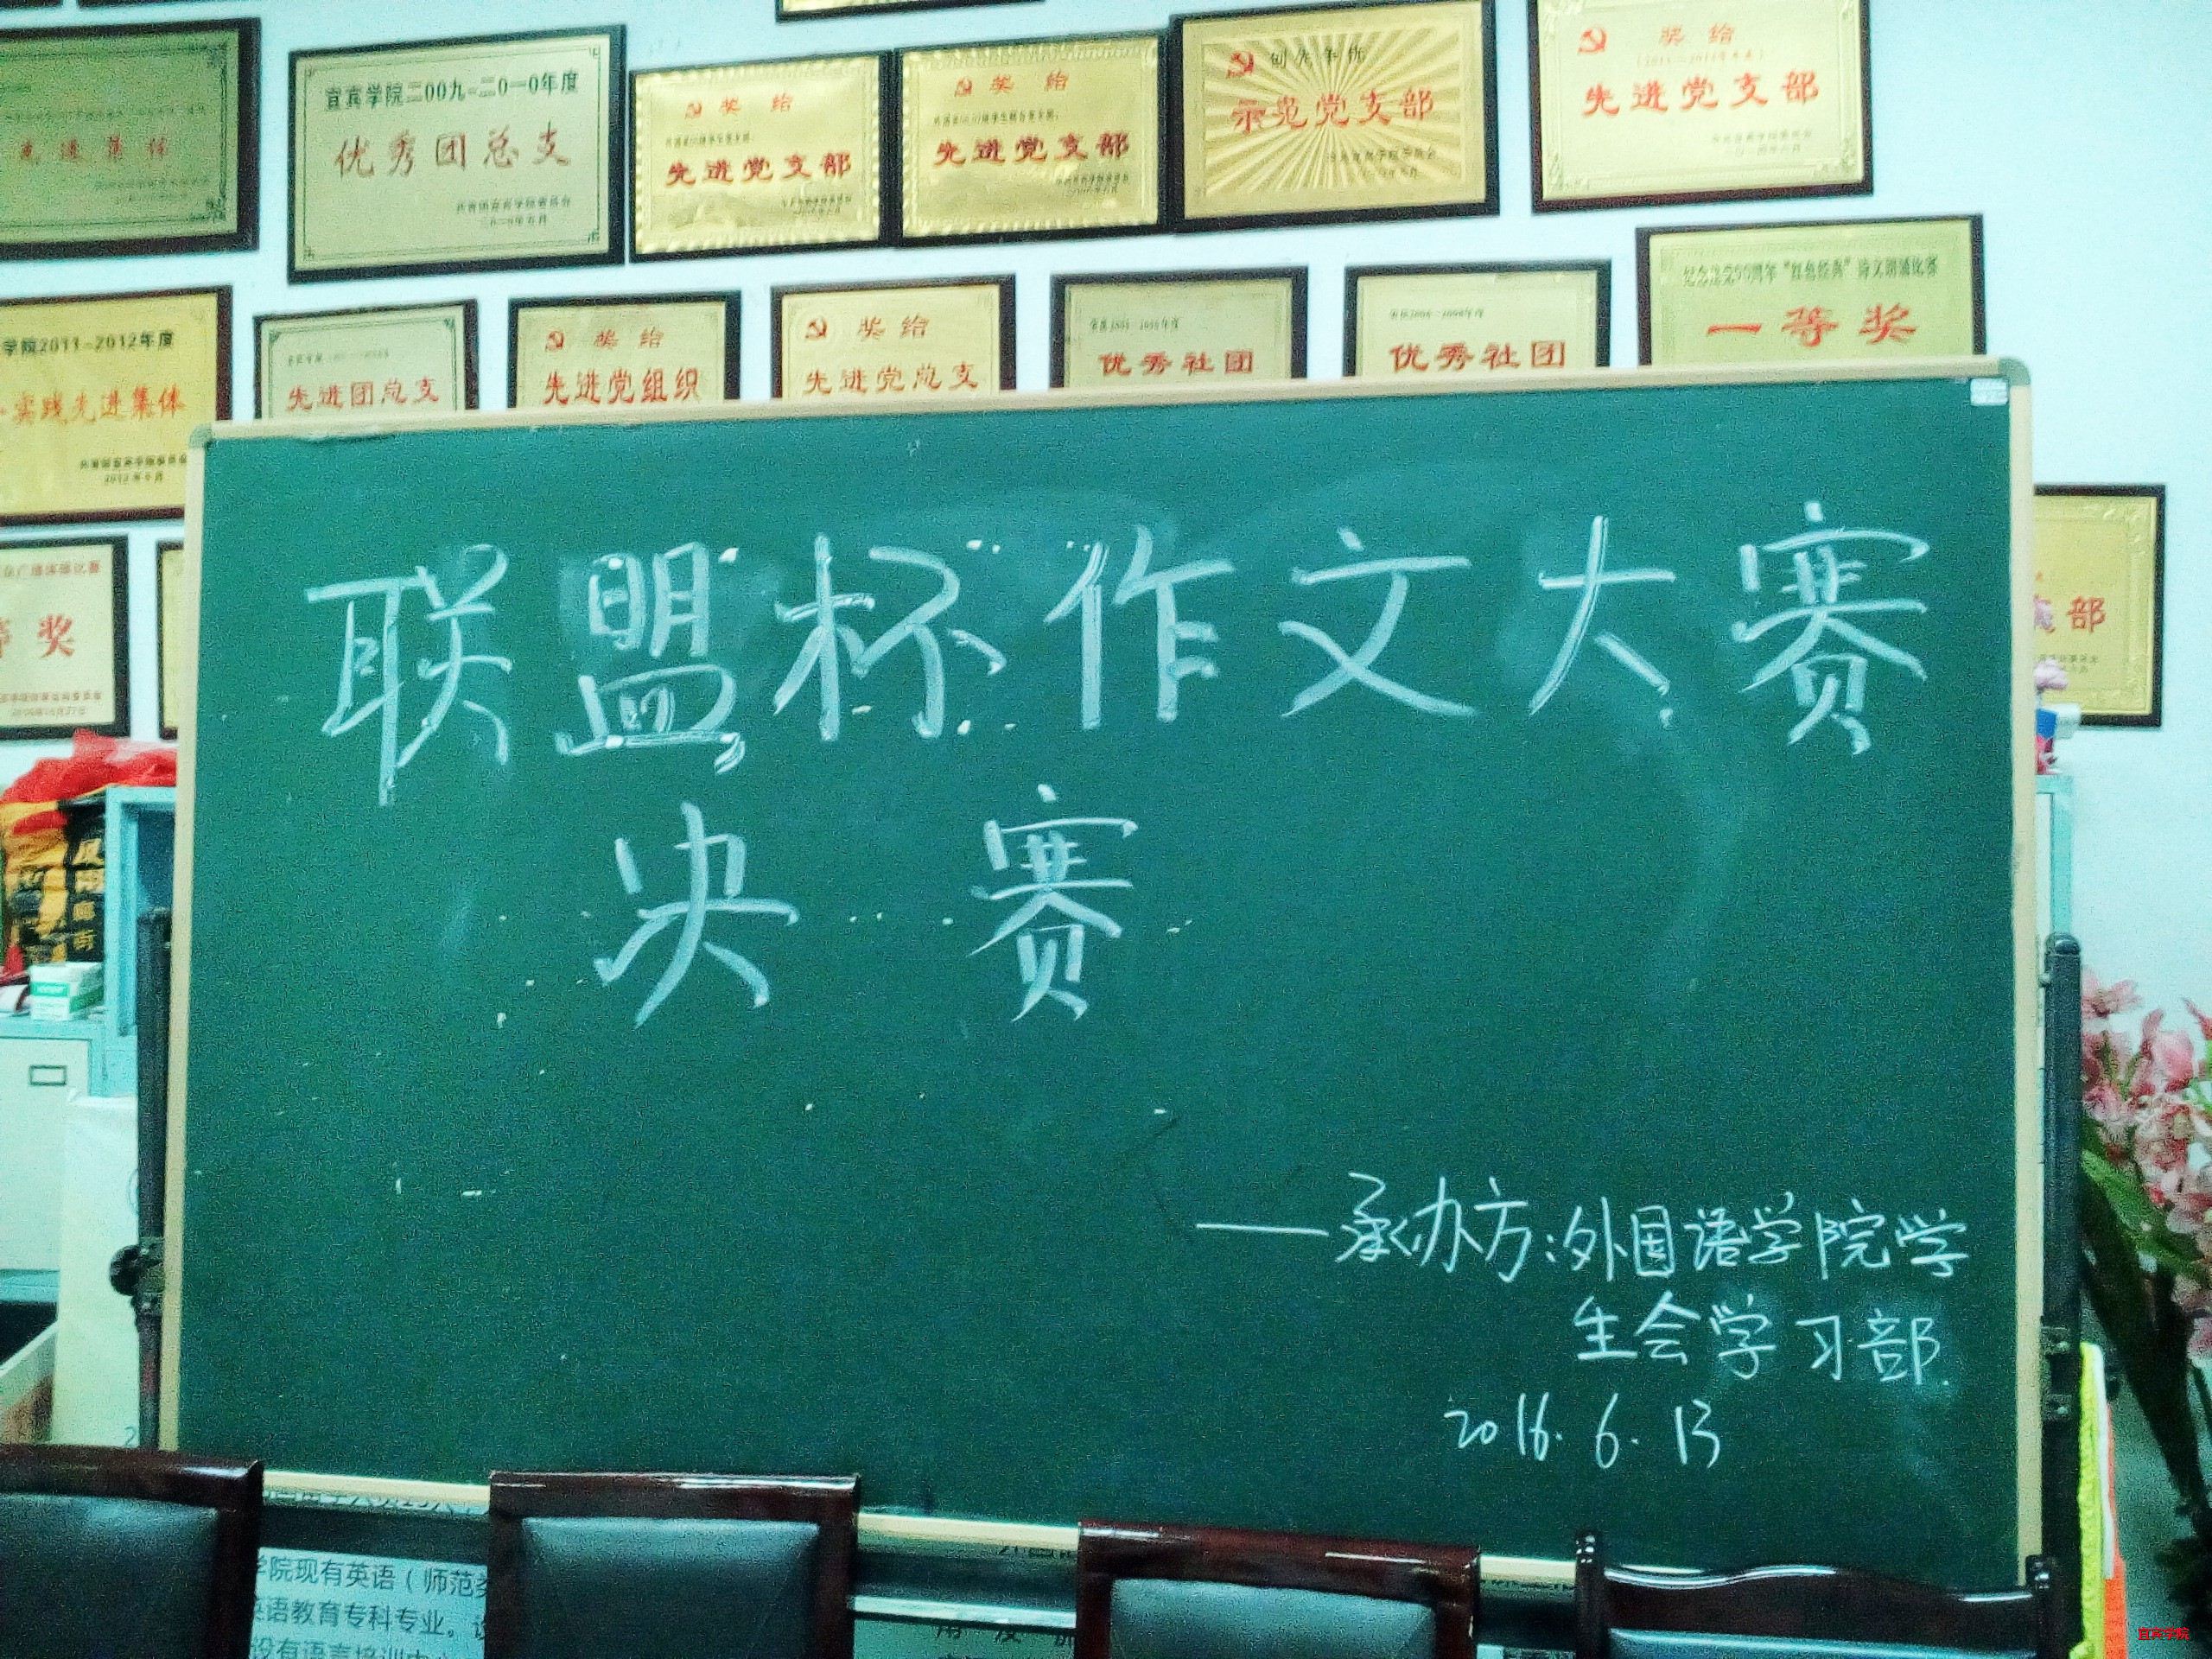 先进集体
宜宾学院二00九-二0一0年度
优秀团总支
共青团宜宾学院委员会
二0一0年五月
奖 给
先进党支部
奖 给
先进党支部
创先争优
示范党支部
奖 给
先进党支部
学院2011-2012年度
实践先进集体
先进团总支
奖 给
先进党组织
奖 给
先进党总支
优秀社团
优秀社团
纪念建党90周年"红色经典"诗文朗诵比赛
一等奖
等奖
部
联盟杯作文大赛
决 赛
——承办方:外国语学院学
生会学习部.
2016.6.13
学院现有英语(师范类
英语教育专科专业。设
设有语言培训中心
宜宾学院